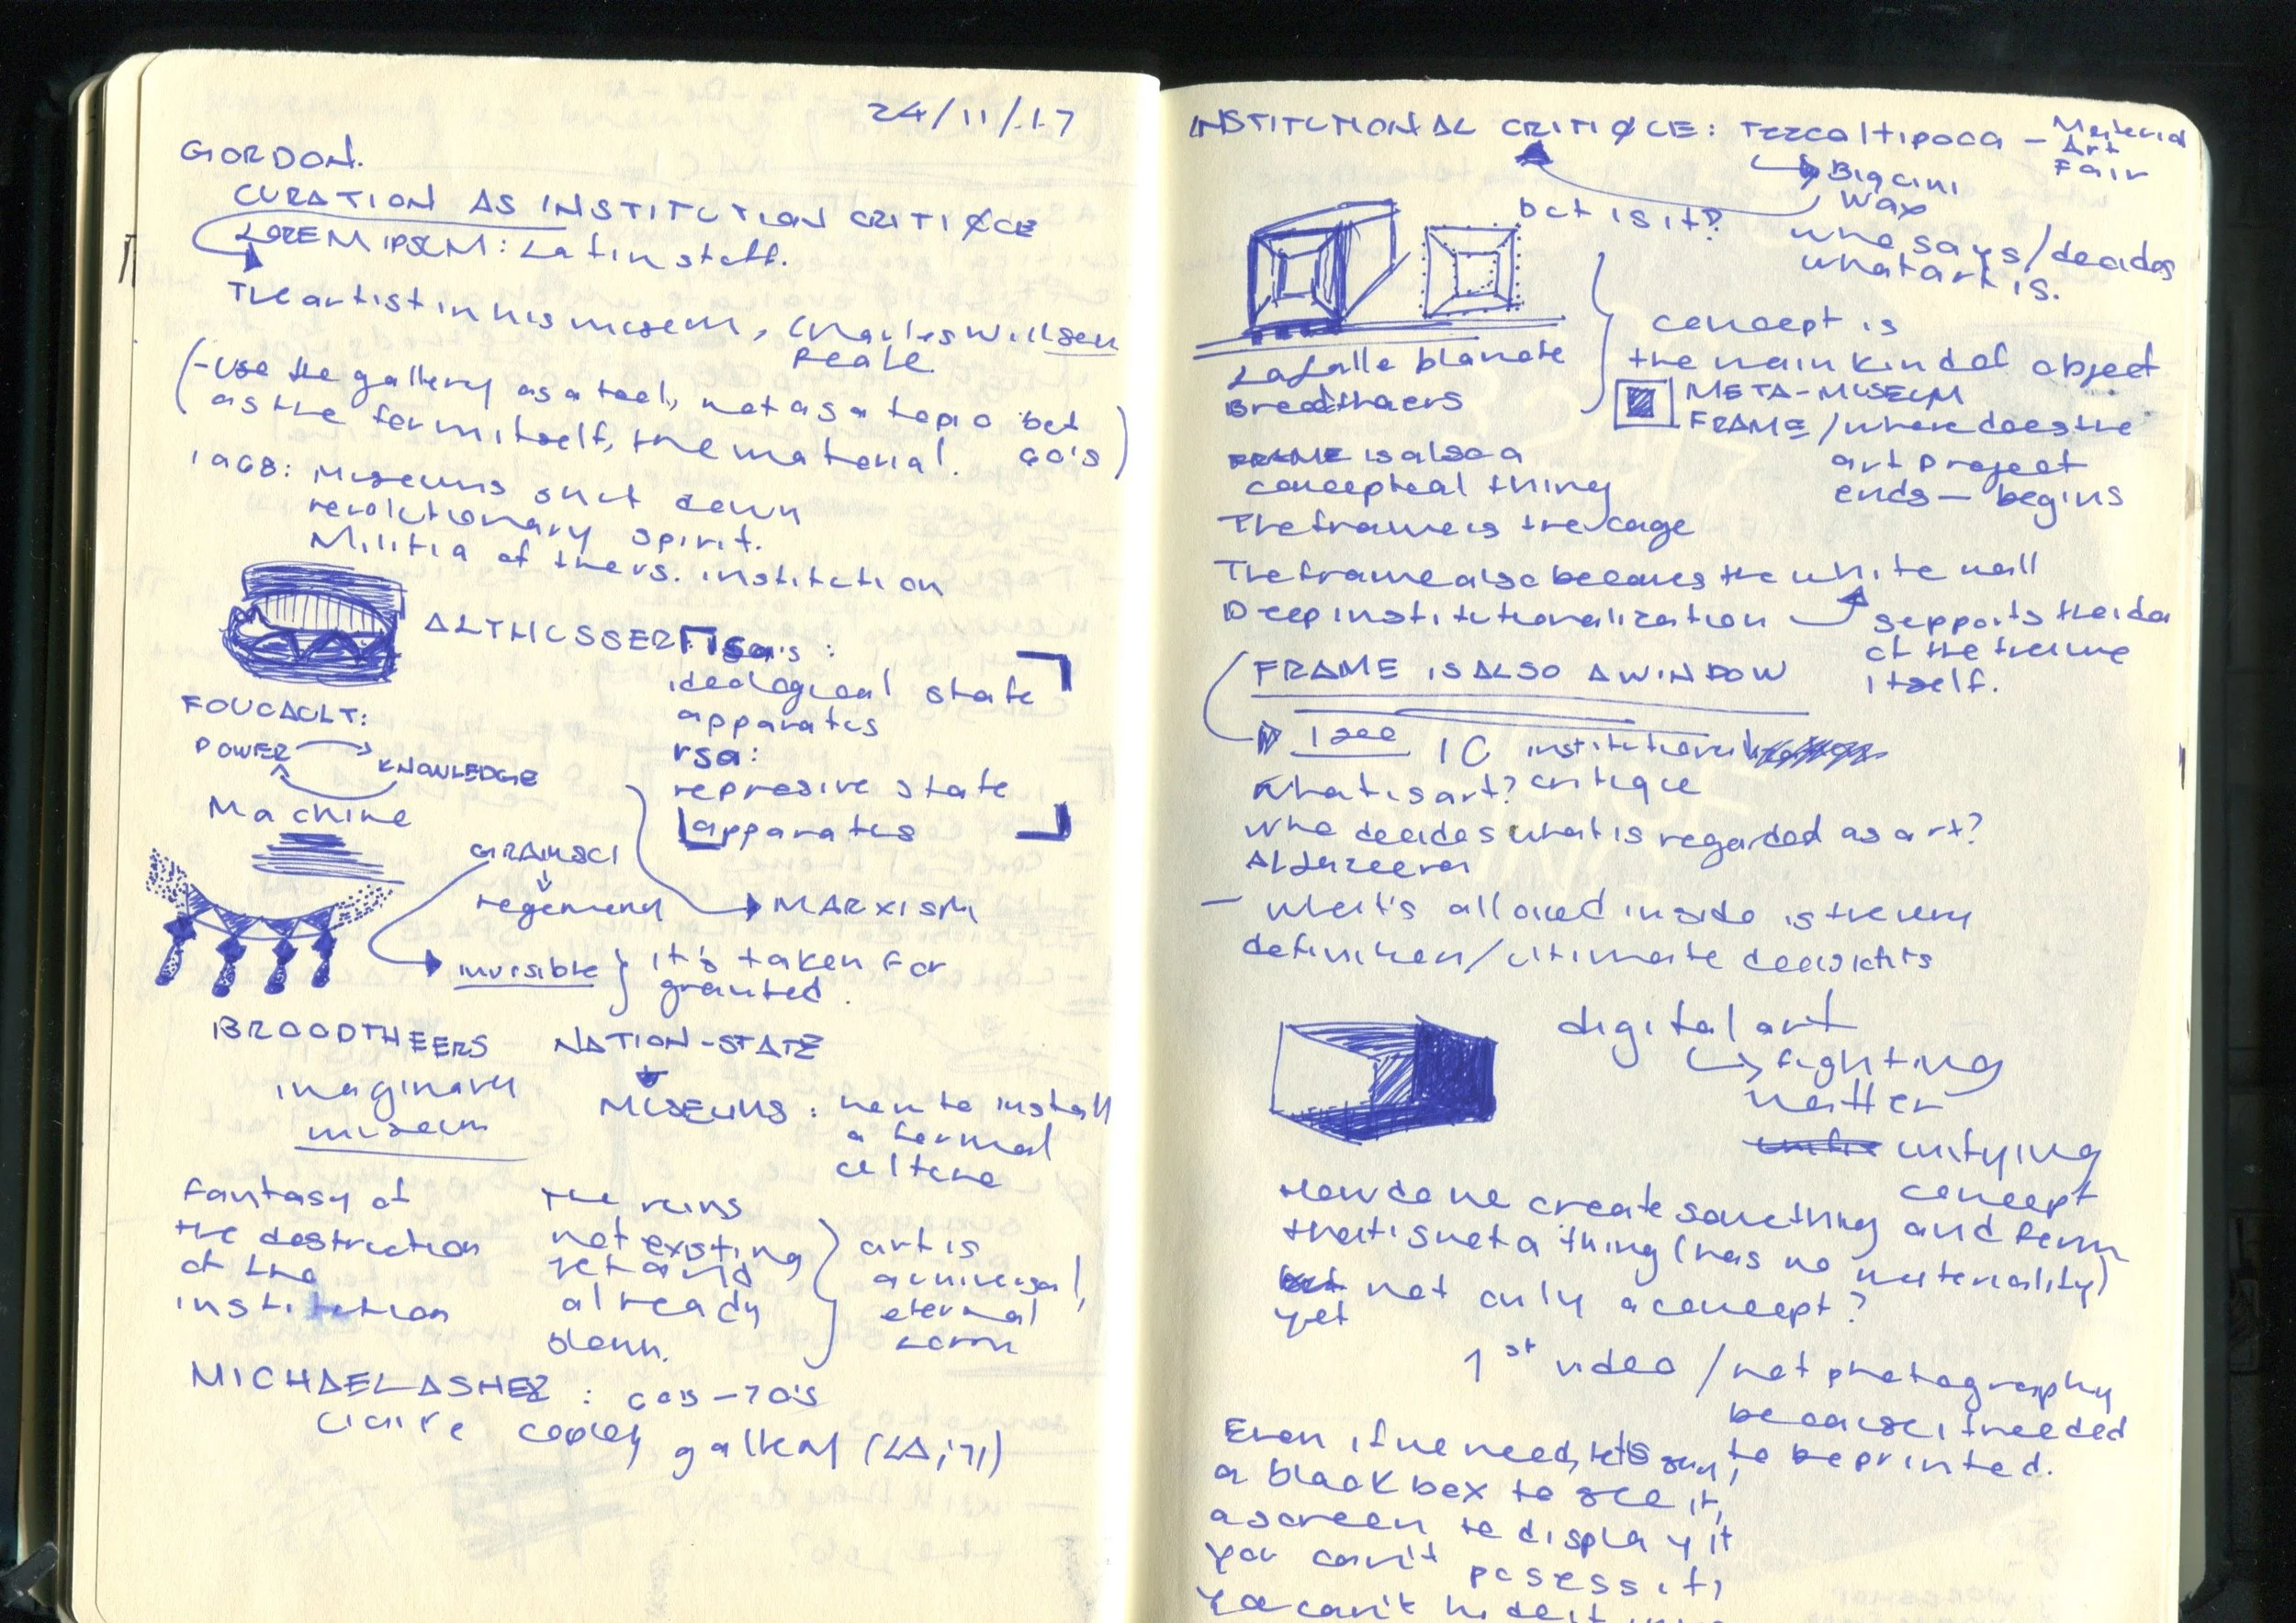 24/11/17
GORDON.
CURATION AS INSTITUTION CRITIQUE
LOREM IPSUM: Latin stuff.
The artist in his museum, Charles Willson
Peale.
(-use the gallery as a tool, not as a topic but
as the form itself, the material. 60's)
1968: Museums shut down
revolutionary spirit.
Militia of the vs. institution
ALTHUSSER isa's:
ideological state
apparatus
rsa:
represive state
apparatus
FOUCAULT:
POWER
KNOWLEDGE
Machine
GRAMSCI
hegemeny
MARXISM
invisible } it's taken for
granted.
BROODTHEERS
imaginary
museum
NATION-STATE
MUSEUMS: how to install
a formal
culture
Fantasy of
the destruction
of the
institution
the ruins
not existing
yet and
already
down.
art is
universal,
eternal
MICHAEL ASHER: 60's-70's
Claire copley gallery (LA, 71)
INSTITUTIONAL CRITIQUE: Tezcaltipoca - Material
Art
Fair
Biquini
Wax
but is it?
who says/decides
what art is.
LaSalle blanche
Broodthaers
concept is
the main kind of object
META-MUSEUM
FRAME/where does the
art project
ends — begins
FRAME is also a
conceptual thing
The frame is the cage
The frame also becomes the white wall
Deep institutionalization
supports the idea
of the frame
itself.
FRAME IS ALSO A WINDOW
I see IC institutional
critique
What is art?
who decides what is regarded as art?
Al Jazeera
- What's allowed inside is the very
definition/ultimate
digital art
fighting
matter
unifying
concept
How do we create something and form
that is not a thing (has no materiality)
yet not only a concept?
1st video / not photography
because it needed
to be printed.
Even if we need, let's say,
a black box to see it,
a screen to display it
you can't posess it,
You can't hide it